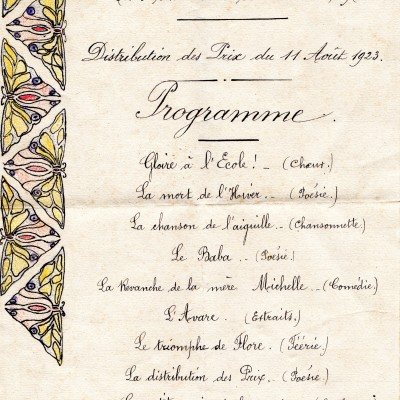 Distribution des Prix du 11 Août 1923.
Programme.
Gloire à l'École! _ (Chœur.)
La mort de l'Hiver. _ (Poésie.)
La chanson de l'aiguille. _ (Chansonnette.)
Le Baba. _ (Poésie.)
La Revanche de la mère Michelle. _ (Comédie.)
L'Avare. (Extraits.)
Le triomphe de Flore. (Féérie.)
La distribution des Prix. _ (Poésie)